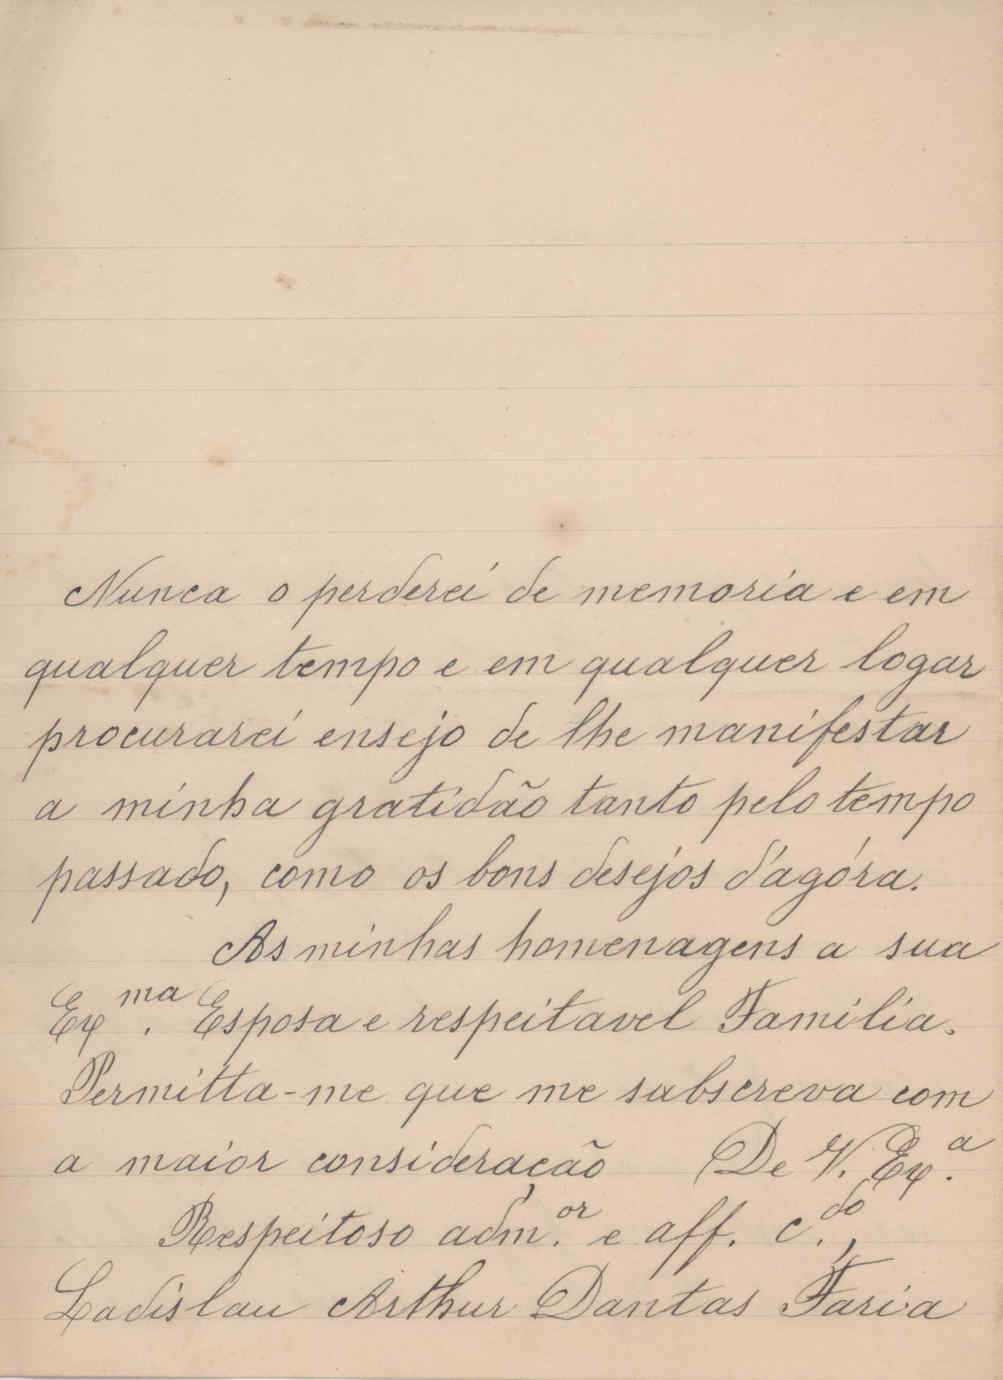 Nunca o perderei de memoria e em
qualquer tempo e em qualquer logar
procurarei ensejo de lhe manifestar
a minha gratidão tanto pelo tempo
passado, como os bons desejos d'agóra.
As minhas homenagens a sua
Exma. Esposa e respeitavel Familia.
Permitta-me que me subscreva com
a maior consideração De V. Exa.
Respeitoso admor. e aff. cdo.,
Ladislau Arthur Dantas Faria